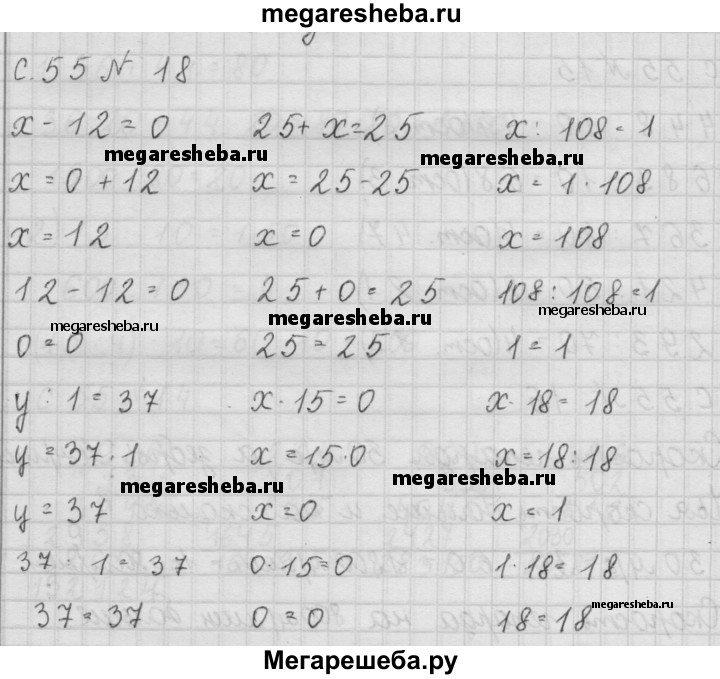 megaresheba.ru
с. 55 № 18
x - 12 = 0 25 + x = 25 x : 108 = 1
megaresheba.ru megaresheba.ru
x = 0 + 12 x = 25 - 25 x = 1 · 108
x = 12 x = 0 x = 108
12 - 12 = 0 25 + 0 = 25 108 : 108 = 1
megaresheba.ru megaresheba.ru megaresheba.ru
0 = 0 25 = 25 1 = 1
y : 1 = 37 x · 15 = 0 x · 18 = 18
y = 37 · 1 x = 15 · 0 x = 18 : 18
megaresheba.ru megaresheba.ru
y = 37 x = 0 x = 1
37 · 1 = 37 0 · 15 = 0 1 · 18 = 18
37 = 37 0 = 0 18 = 18
megaresheba.ru
Мегарешеба.ру